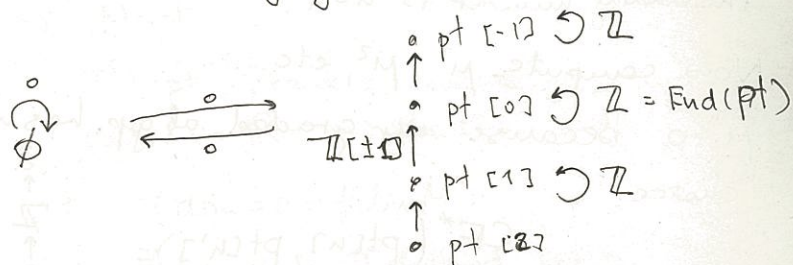 pt [-1] ↺ ℤ
0 0 pt [0] ↺ ℤ = End(pt)
∅ 0 ℤ[±1] pt [1] ↺ ℤ
pt [2]